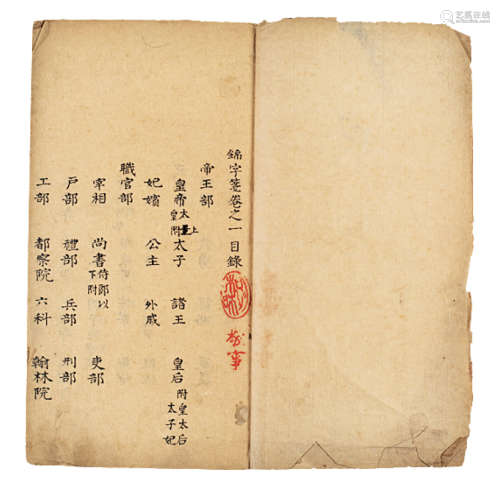 錦字箋卷之一目錄
帝王部
皇帝 太上皇附 太子 諸王 皇后 附皇太后太子妃
妃嬪 公主 外戚
職官部
宰相 尚書 侍郎以下附 吏部
戶部 禮部 兵部 刑部
工部 都察院 六科 翰林院